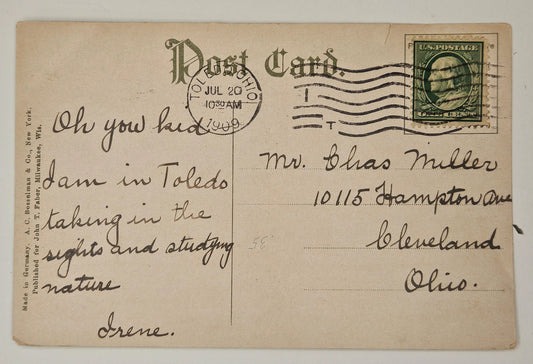 Post Card.
U.S. POSTAGE
TOLEDO, OHIO
JUL 20
10 30 AM
1909
Oh you kid.
I am in Toledo
taking in the
sights and studying
nature
Irene.
Mr. Chas Miller
10115 Hampton Ave
Cleveland
Ohio.
Made in Germany. A. C. Bosselman & Co., New York.
Published for John T. Faber, Milwaukee, Wis.